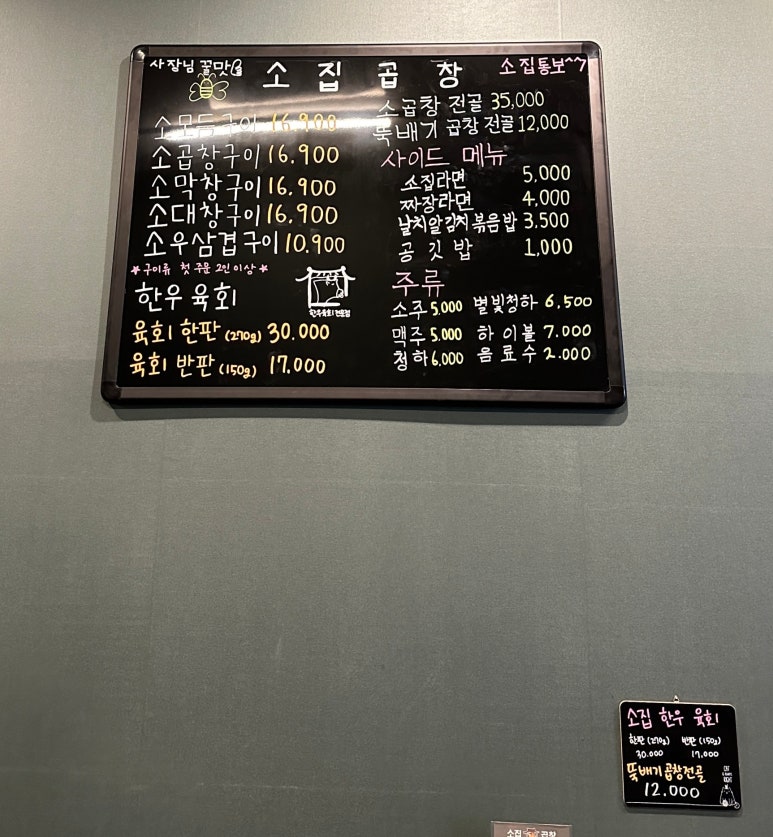 사장님 꿀맛
소집곱창
소집통보^^7
소모듬구이 16.900
소곱창구이 16.900
소막창구이 16.900
소대창구이 16.900
소우삼겹구이 10.900
* 구이류 첫 주문 2인 이상 *
한우 육회
한우육회전문점
육회 한판 (270g) 30.000
육회 반판 (150g) 17.000
소곱창 전골 35,000
뚝배기 곱창 전골 12,000
사이드 메뉴
소집라면 5,000
짜장라면 4,000
날치알 김치 볶음밥 3,500
공깃밥 1,000
주류
소주 5.000 별빛청하 6,500
맥주 5.000 하이볼 7.000
청하 6.000 음료수 2.000
소집 한우 육회
한판 (270g) 반판 (150g)
30.000 17.000
뚝배기 곱창전골
12.000
소집 곱창